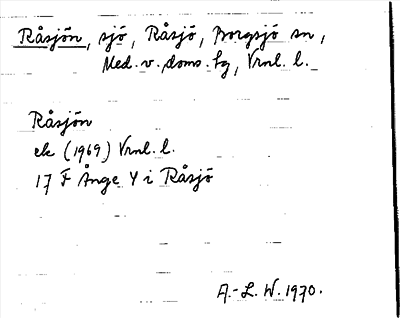 Råsjön, sjö, Råsjö, Borgsjö sn,
Med. v. doms. hg, Vrnl. l.
Råsjön
ek (1969) Vrnl. l.
17 F Ånge Y i Råsjö
A.-L. W. 1970.